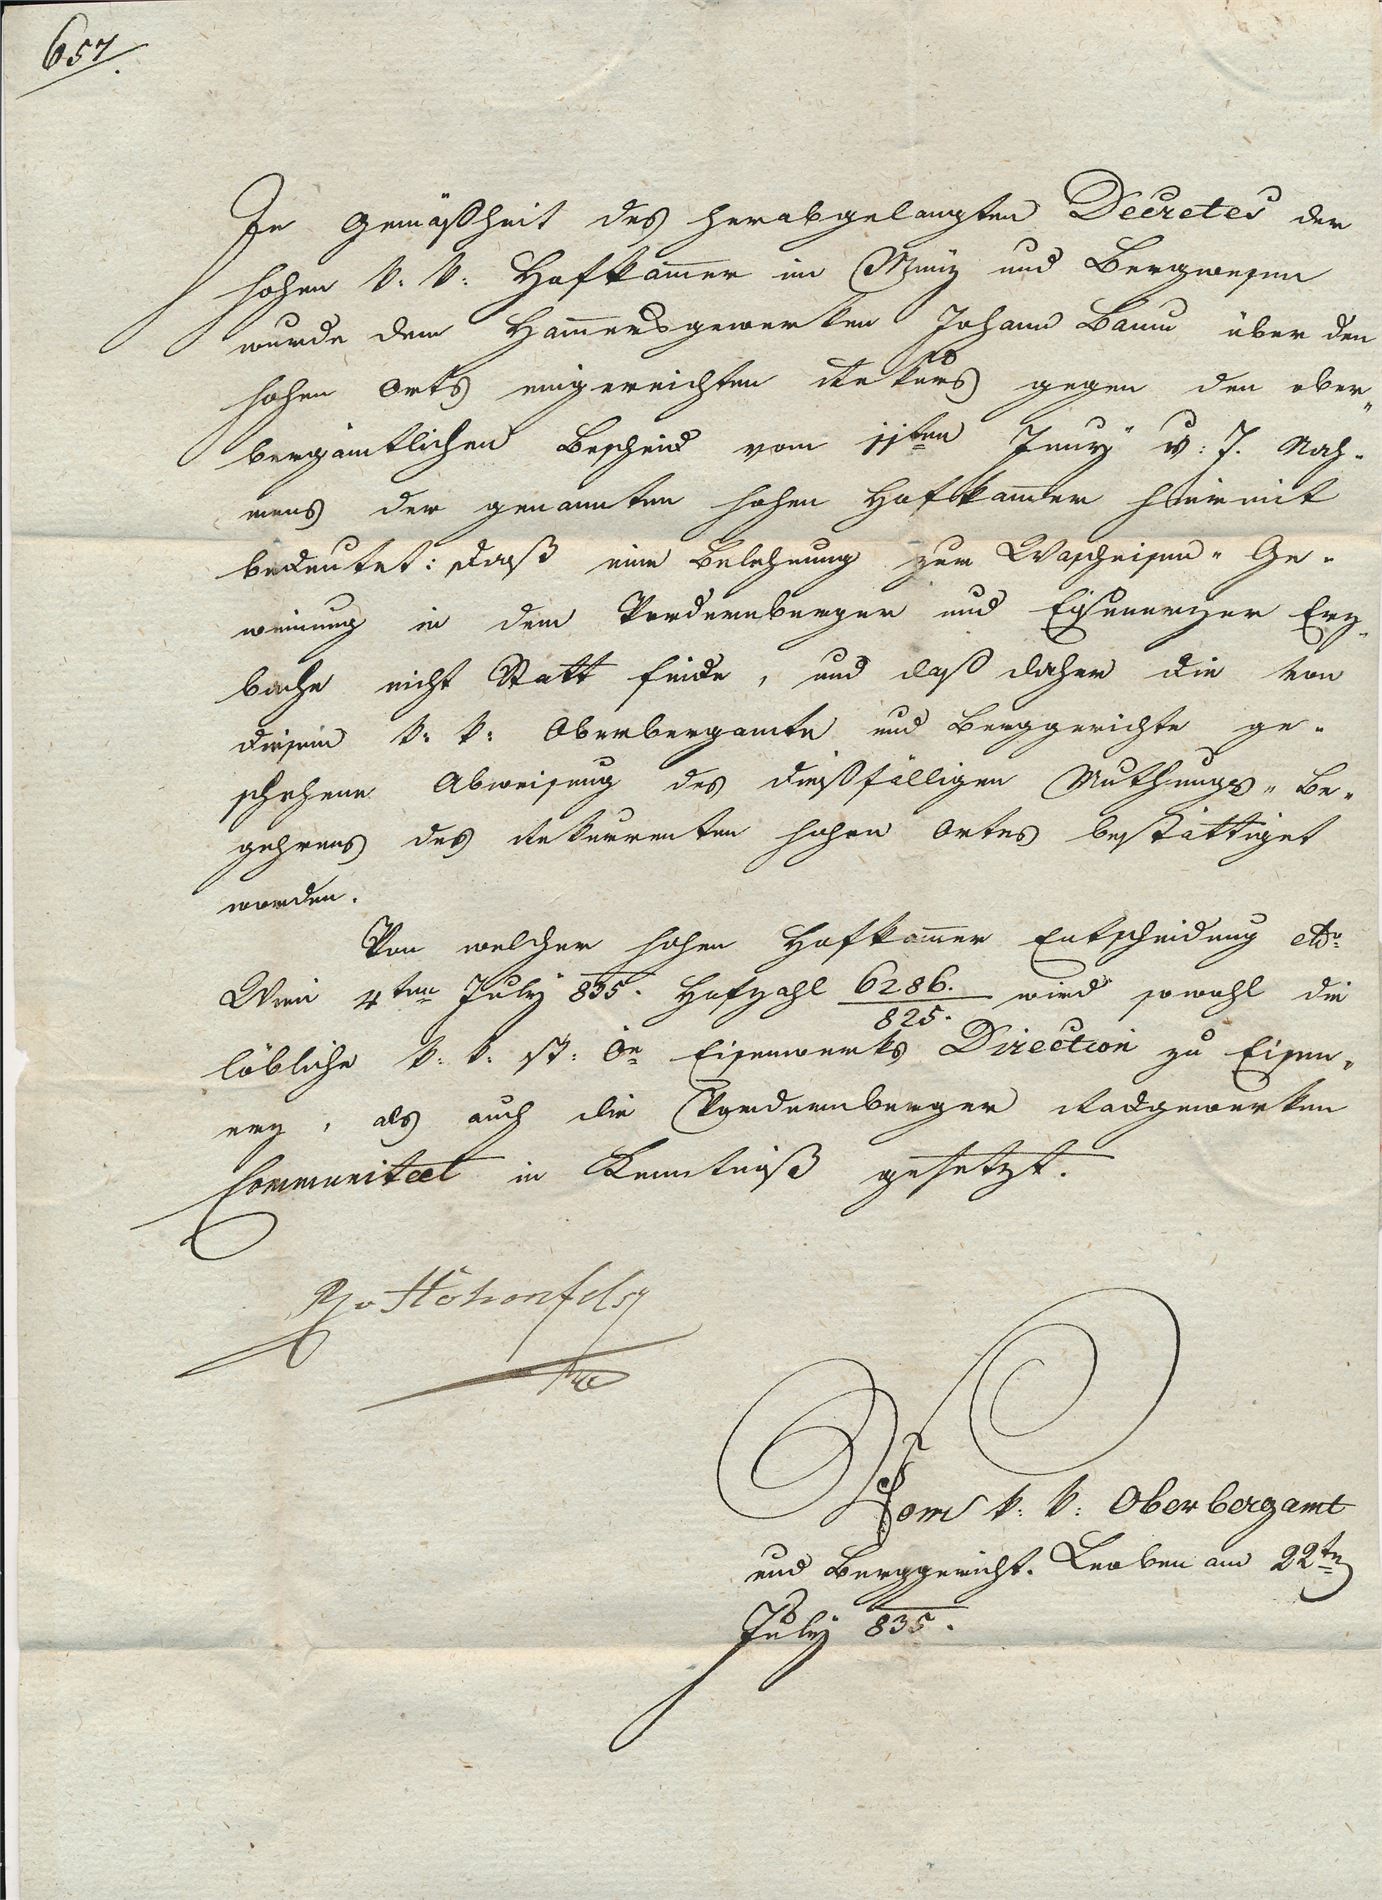 657.
In Gemäßheit des herabgelangten Decretes der
hohen k. k. Hofkammer im Münz und Bergwesen
wurde dem Hammersgewerken Johann Baum über den
hohen Orts eingereichten Rekurs gegen den ober„
bergämtlichen Bescheid vom 11ten Juny d: J. Nah„
mens der genannten hohen Hofkammer hiemit
bedeutet: daß eine Belehnung zur Wascheisen„ Ge„
winnung in dem Vordernberger und Eisenerzer Erz„
bache nicht Statt finde, und daß daher die von
diesem k. k. Oberbergamte und Berggerichte ge„
schehene Abweisung des dießfälligen Muthungs„ Be„
gehrens des Rekurrenten hohen Ortes bestättiget
worden.
Von welcher hohen Hofkammer Entscheidung ddo
Wien 4ten July 835. Hofzahl 6286./825. wird sowohl die
löbliche k. k. st: öe Eisenwerks Direction zu Eisen„
erz, als auch die Vordernberger Radgewerken
Communitaet in Kenntniß gesetzt.
v Hohenfels
Vom k. k. Oberbergamt
und Berggericht. Leoben am 22tn
July 835.